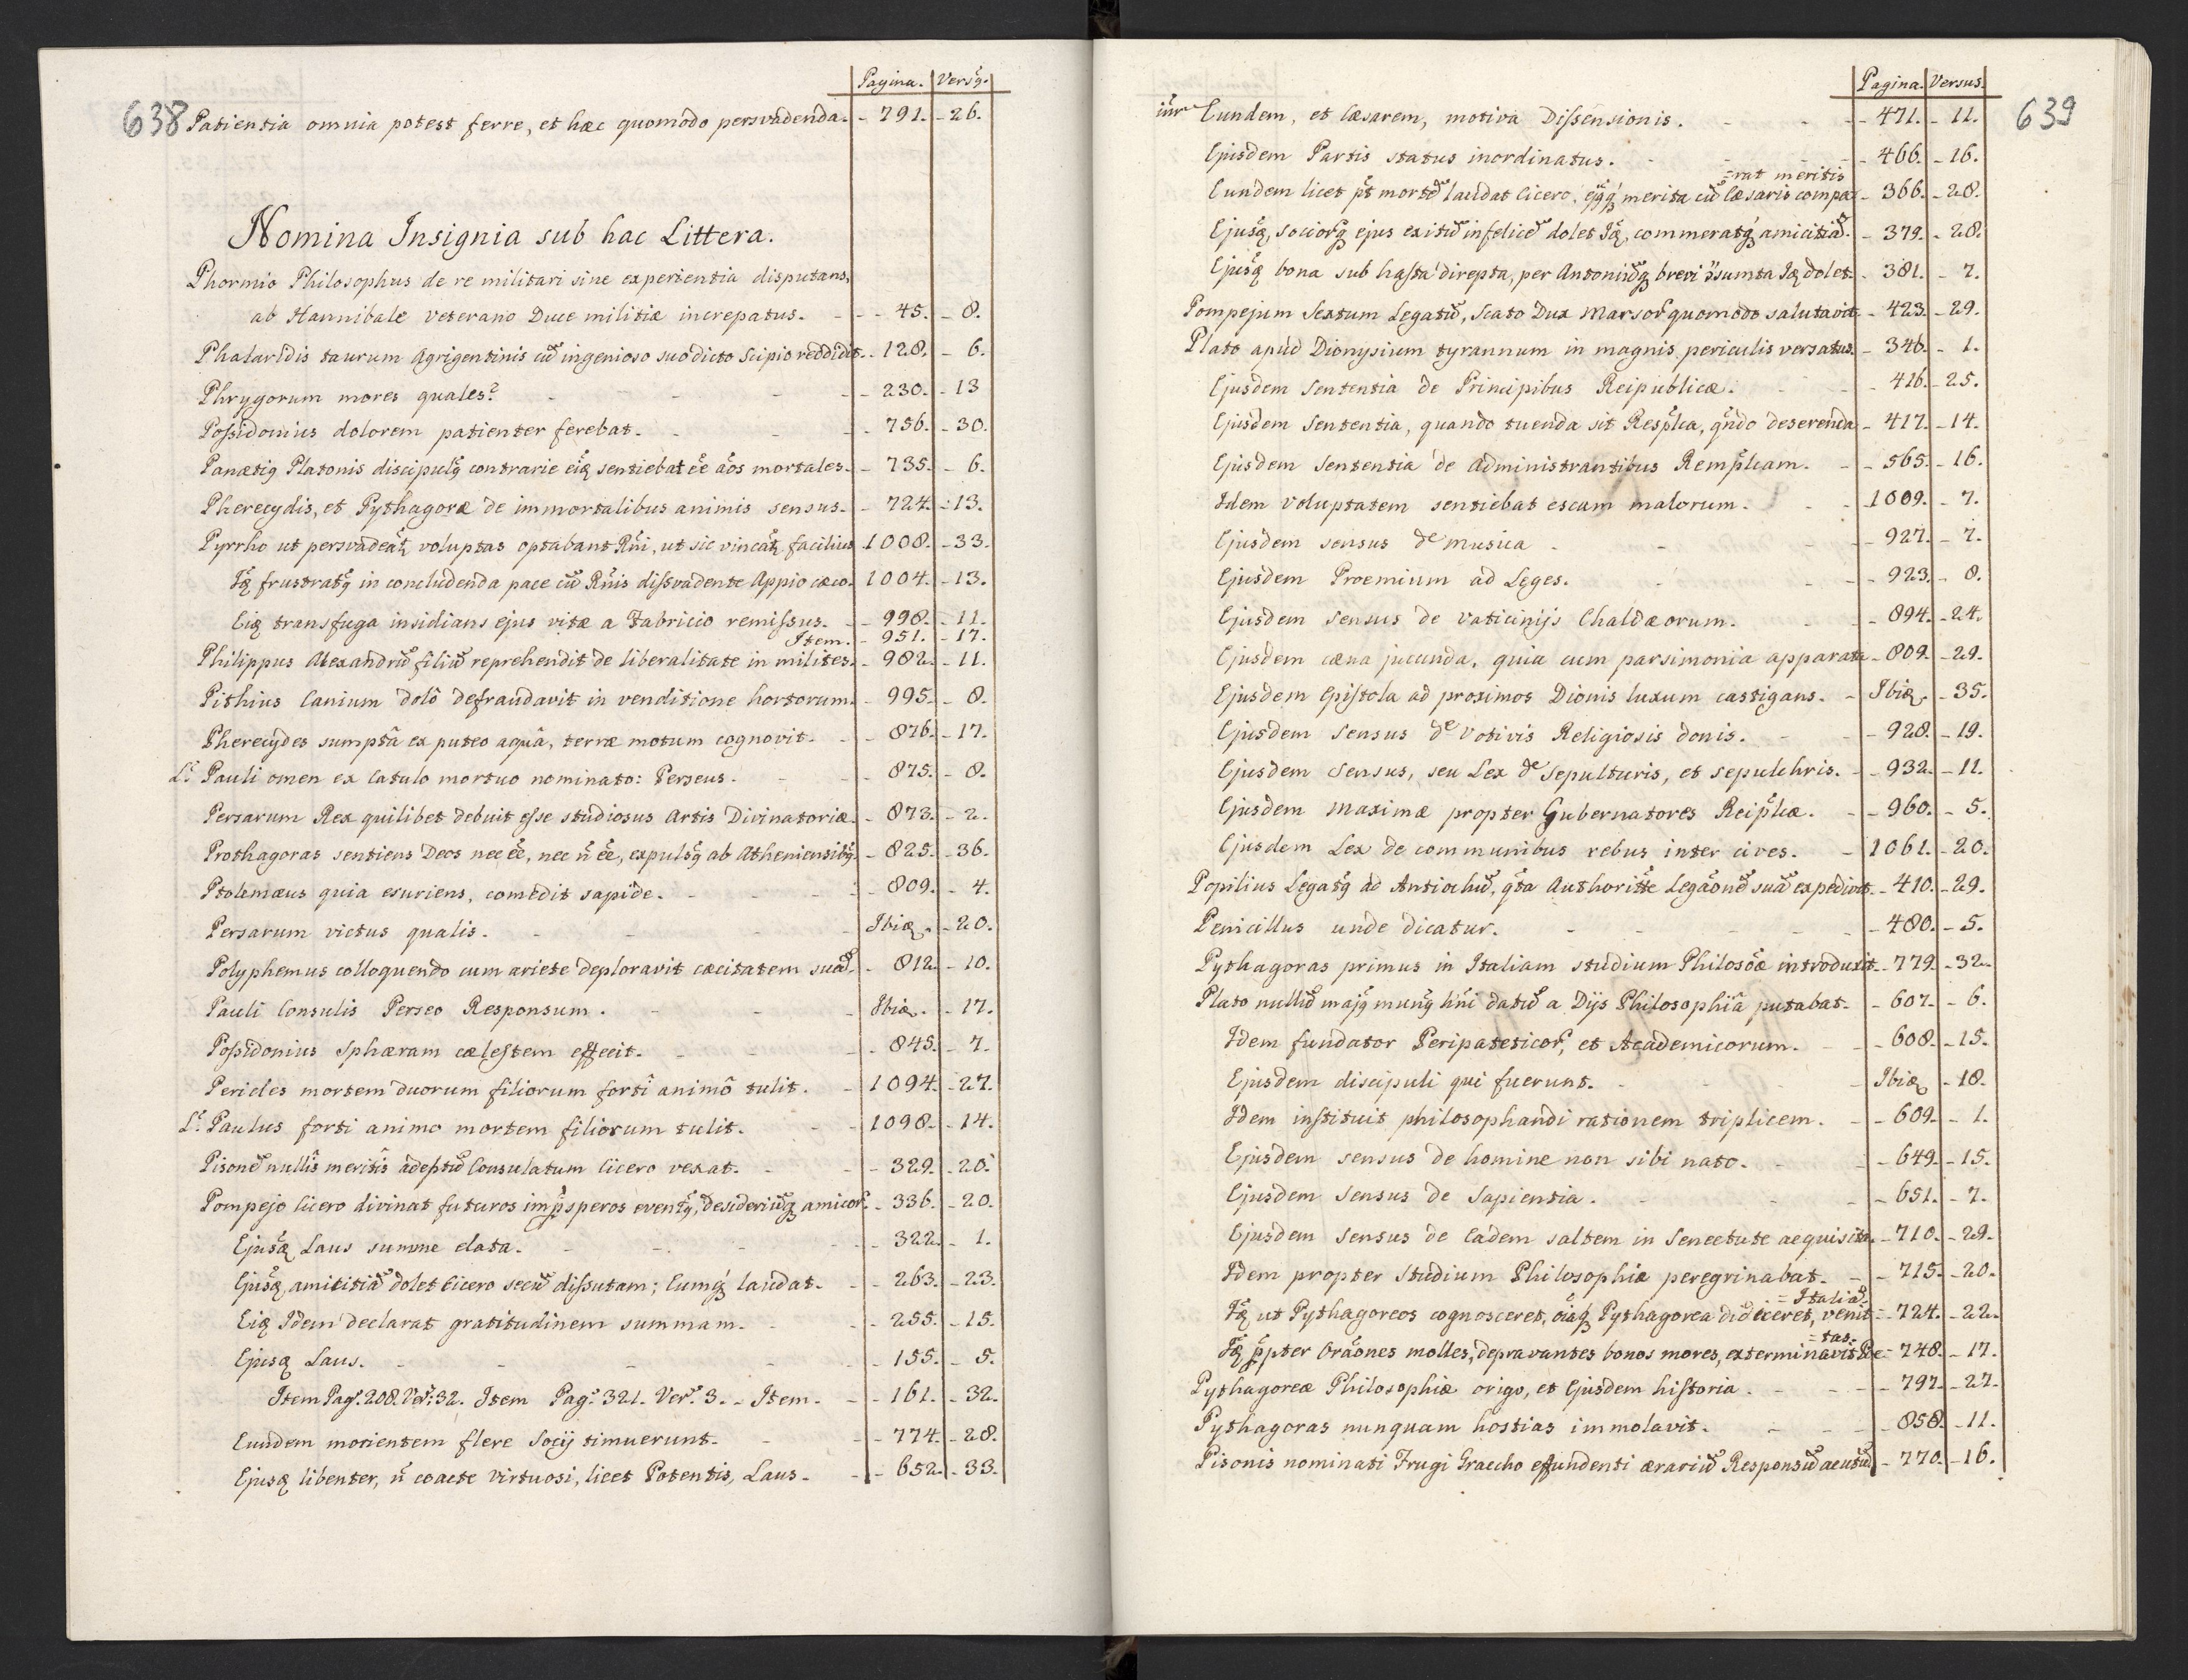 Pagina. Versꝯ.
638 Patientia omnia potest ferre, et hæc quomodo persvadenda. - 791. - 26.
Nomina Insignia sub hac Littera.
Phormio Philosophus de re militari sine experientia disputans,
ab Hannibale veterano Duce militiæ increpatus. - 45. - 8.
Phalaridis taurum Agrigentinis cũ ingenioso suo dicto Scipio reddidit. - 128. - 6.
Phrygorum mores quales? - 230. - 13
Possidonius dolorem patienter ferebat. - 756. - 30.
Panætiꝯ Platonis discipulꝯ contrarie eiꝗ sentiebat ẽe aẽos mortales. - 735. - 6.
Pherecydis, et Pythagoræ de immortalibus animis sensus. - 724. - 13.
Pyrrho ut persvadeat̃ voluptas optabant Rñi, ut sic vincat̃ facilius 1008. - 33.
Iꝗ frustratꝯ in concludenda pace cũ Rñis dissvadente Appio cæco. 1004. - 13.
Eiꝗ transfuga insidians ejus vitæ a Fabricio remissus. - 998. - 11.
Item. - 951. - 17.
Philippus Alexandrũ filiũ reprehendit de liberalitate in milites. - 982. - 11.
Pithius Canium dolô defraudavit in venditione hortorum. 995. - 8.
Pherecydes sumptâ ex puteo aquâ, terræ motum cognovit. - 876. - 17.
L: Pauli omen ex Catulo mortuo nominato: Perseus. - 875. - 8.
Persarum Rex quilibet debuit esse studiosus Artis Divinatoriæ. - 873. - 2.
Prothagoras sentiens Deos nec ẽe, nec ñ ẽe, expulsꝯ ab Atheniensibꝯ. - 825. - 36.
Ptolemæus quia esuriens, comedit sapide. - 809. - 4.
Persarum victus qualis. - Ibiꝗ. - 20.
Polyphemus colloquendo cum ariete deploravit cæcitatem suã. - 812. - 10.
Pauli Consulis Perseo Responsum. - Ibiꝗ. - 17.
Possidonius Sphæram cælestem effecit. - 845. - 7.
Pericles mortem duorum filiorum forti animô tulit. - 1094. - 27.
L: Paulus forti animo mortem filiorum tulit. - 1098. - 14.
Pisonẽ nullis meritis adeptũ Consulatum Cicero vexat. - 329. - 20.
Pompejo Cicero divinat futuros imꝓsperos eventꝯ, desideriũꝗ amicor̃. - 336. - 20.
Ejusꝗ Laus summe elata. - 322. - 1.
Ejusꝗ amicitiã dolet Cicero secũ dissutam; Eumꝗ laudat. - 263. - 23.
Eiꝗ Idem declarat gratitudinem summam. - 255. - 15.
Ejusꝗ Laus. - 155. - 5.
Item Pag: 208. Ver: 32. Item Pag: 321. Ver: 3. - Item. - 161. - 32.
Eundem morientem flere Socij timuerunt. - 774. - 28.
Ejusꝗ libenter, ñ coacte Virtuosi, licet Potentis, Laus. - 652. - 33.
Pagina. Versus.
639
inr̃ Eundem, et Cæsarem, motiva Dissensionis. - 471. - 11.
Ejusdem Partis status inordinatus. - 466. - 16.
=rat meritis
Eundem licet p̃t mortẽ laudat Cicero, ejꝯꝗ merita cũ Cæsaris compa= - 366. - 28.
Ejusꝗ, sociorꝗ ejus exitũ infelicẽ dolet Iꝗ, commeratꝗ amicitiã. - 379. - 28.
Ejusꝗ bona sub hasta direpta, per Antoniũꝗ brevi ɔ̃sumta Iꝗ dolet. - 381. - 7.
Pompejum Sextum Legatũ, Scato Dux Marsor̃ quomodo salutavit. - 423. - 29.
Plato apud Dionysium tyrannum in magnis periculis versatus. - 346. - 1.
Ejusdem Sententia de Principibus Reipublicæ. - 416. - 25.
Ejusdem Sententia, quando tuenda sit Resp̃lica, qñdo deserenda - 417. - 14.
Ejusdem Sententia de administrantibus Remp̃licam. - 565. - 16.
Idem voluptatem sentiebat escam malorum. - 1009. - 7.
Ejusdem sensus de Musica - 927. - 7.
Ejusdem Proemium ad Leges. - 923. - 8.
Ejusdem Sensus de vaticinijs Chaldæorum. - 894. - 24.
Ejusdem cæna jucunda, quia cum parsimonia apparata - 809. - 29.
Ejusdem Epistola ad proximos Dionis luxum castigans. - Ibiꝗ. - 35.
Ejusdem Sensus de Votivis Religiosis donis. - 928. - 19.
Ejusdem Sensus, seu Lex de Sepulturis, et sepulchris. - 932. - 11.
Ejusdem Maximæ propter Gubernatores Reip̃licæ. - 960. - 5.
Ejusdem Lex de communibus rebus inter cives. - 1061. - 20.
Popilius Legatꝯ ad Antiochũ, q̃ta Authorit̃te Legãonẽ suã expedivit. - 410. - 29.
Penicillus unde dicatur. - 480. - 5.
Pythagoras primus in Italiam studium Philosõæ introduxit. - 779. - 32.
Plato nullũ majꝯ munꝯ hñi datũ a Dijs Philosophiâ putabat. - 607. - 6.
Idem fundator Peripateticor̃, et Academicorum. - 608. - 15.
Ejusdem discipuli qui fuerunt. - Ibiꝗ - 18.
Idem instituit philosophandi rationem triplicem. - 609. - 1.
Ejusdem sensus de homine non sibi nato. - 649. - 15.
Ejusdem Sensus de Sapientia. - 651. - 7.
Ejusdem Sensus de Eadem saltem in Senectute aequisita. - 710. - 29.
Idem propter Studium Philosophiæ peregrinabat. - 715. - 20.
=Italiã.
Iꝗ ut Pythagoreos cognosceret, oĩaꝗ Pythagorea didiceret, venit= - 724. - 22.
=tas.
Iꝗ ꝓpter Orãones molles, depravantes bonos mores, exterminavit Poe= - 748. - 17.
Pythagoreæ Philosophiæ origo, et Ejusdem historia. - 797. - 27.
Pythagoras nunquam hostias immolavit. - 858. - 11.
Pisonis nominati Frugi Graccho effundenti ærariũ Responsũ acutũ - 770. - 16.